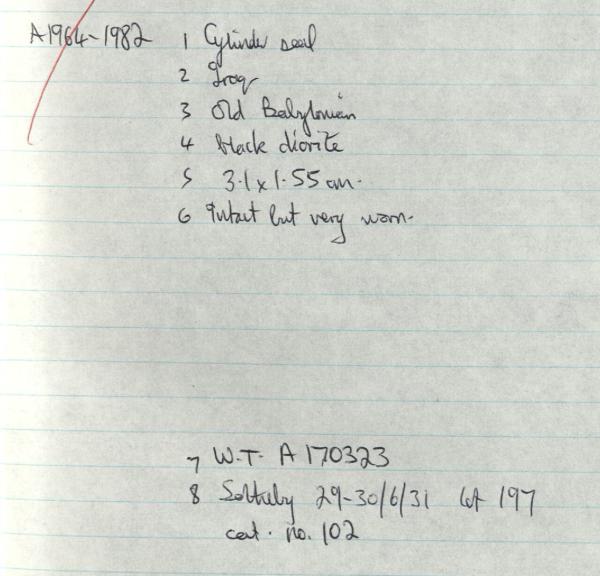 A1964-1982 1 Cylinder seal
2 Iraq
3 Old Babylonian
4 black diorite
5 3.1 x 1.55 cm.
6 Intact but very worn.
7 W.T. A170323
8 Sotheby 29-30/6/31 lot 197
cat. no. 102